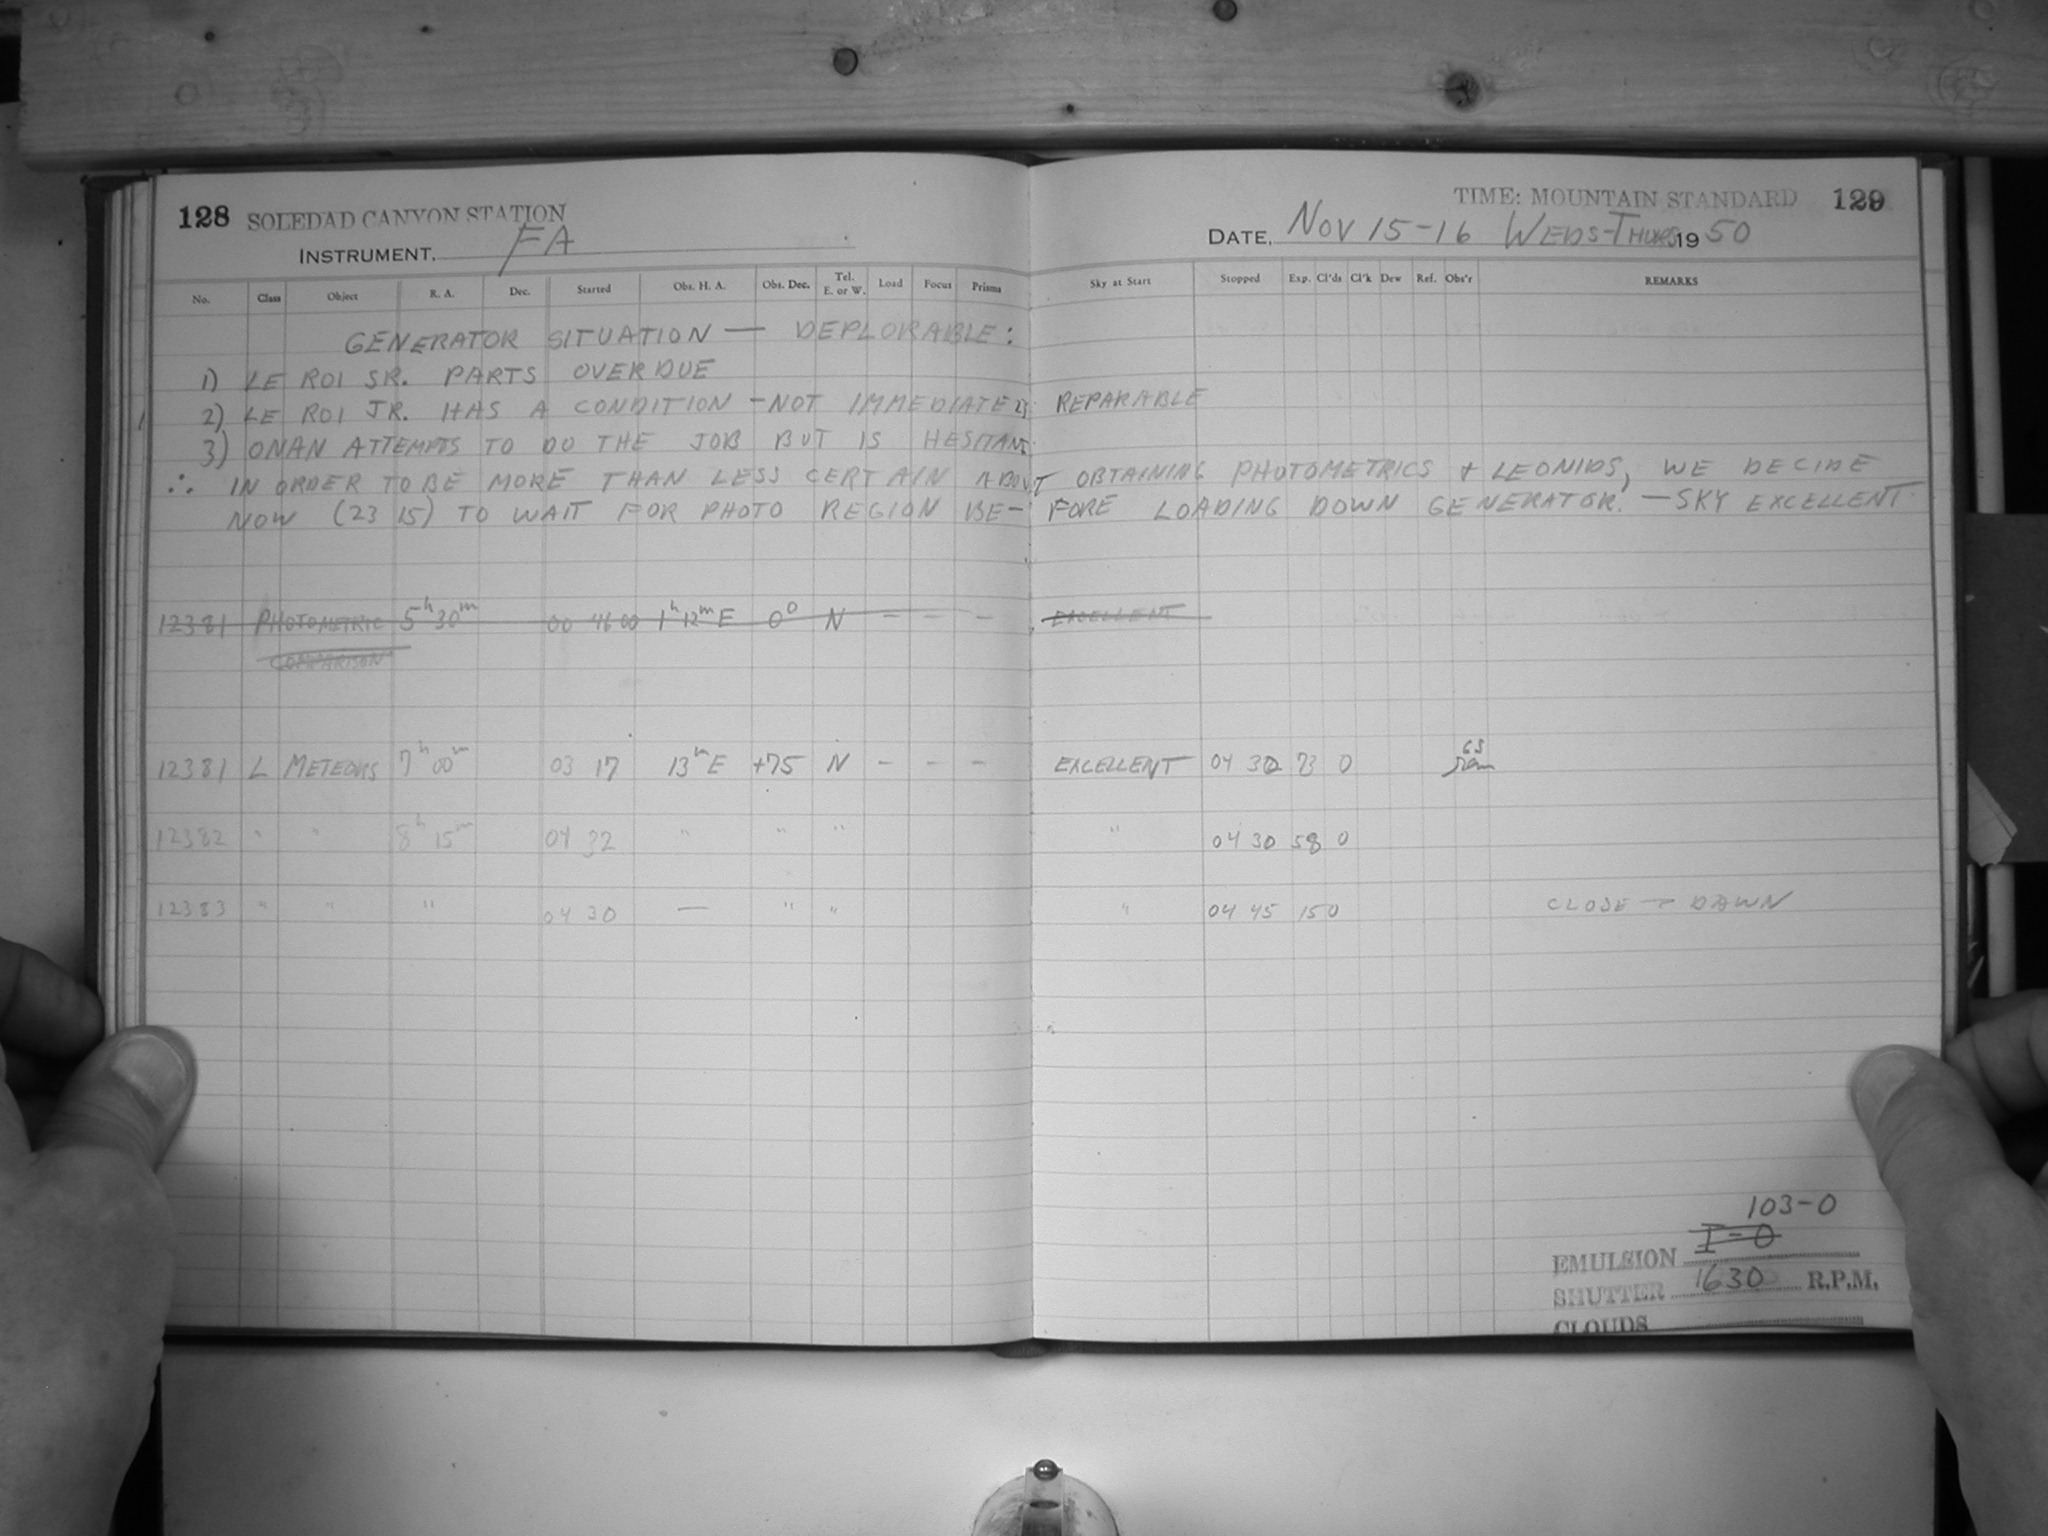 128 SOLEDAD CANYON STATION
INSTRUMENT, FA
TIME: MOUNTAIN STANDARD 129
DATE, NOV 15-16 WEDS-THURS 1950
No. Class Object R. A. Dec. Started Obs. H. A. Obs. Dec. Tel. E. or W. Load Focus Prisms Sky at Start Stopped Exp. Cl'ds Cl'k Dew Ref. Obs'r REMARKS
GENERATOR SITUATION — DEPLORABLE:
1) LE ROI SR. PARTS OVERDUE
2) LE ROI JR. HAS A CONDITION - NOT IMMEDIATELY REPARABLE
3) ONAN ATTEMPTS TO DO THE JOB BUT IS HESITANT
∴ IN ORDER TO BE MORE THAN LESS CERTAIN ABOUT OBTAINING PHOTOMETRICS + LEONIDS, WE DECIDE
NOW (23 15) TO WAIT FOR PHOTO REGION BE- FORE LOADING DOWN GENERATOR. — SKY EXCELLENT
12381 PHOTOMETRIC 5h 30m 00 46 00 1h 12m E 0° N - - - EXCELLENT
COMPARISON
12381 L METEORS 7h 00m 03 17 13m E +75 N - - - EXCELLENT 04 30 73 0
12382 " " 8h 15m 04 32 " " " " 04 30 58 0
12383 " " " 04 30 — " " " 04 45 15 0 CLOSE - DAWN
103-0
EMULSION I-0
SHUTTER 1630 R.P.M.
CLOUDS